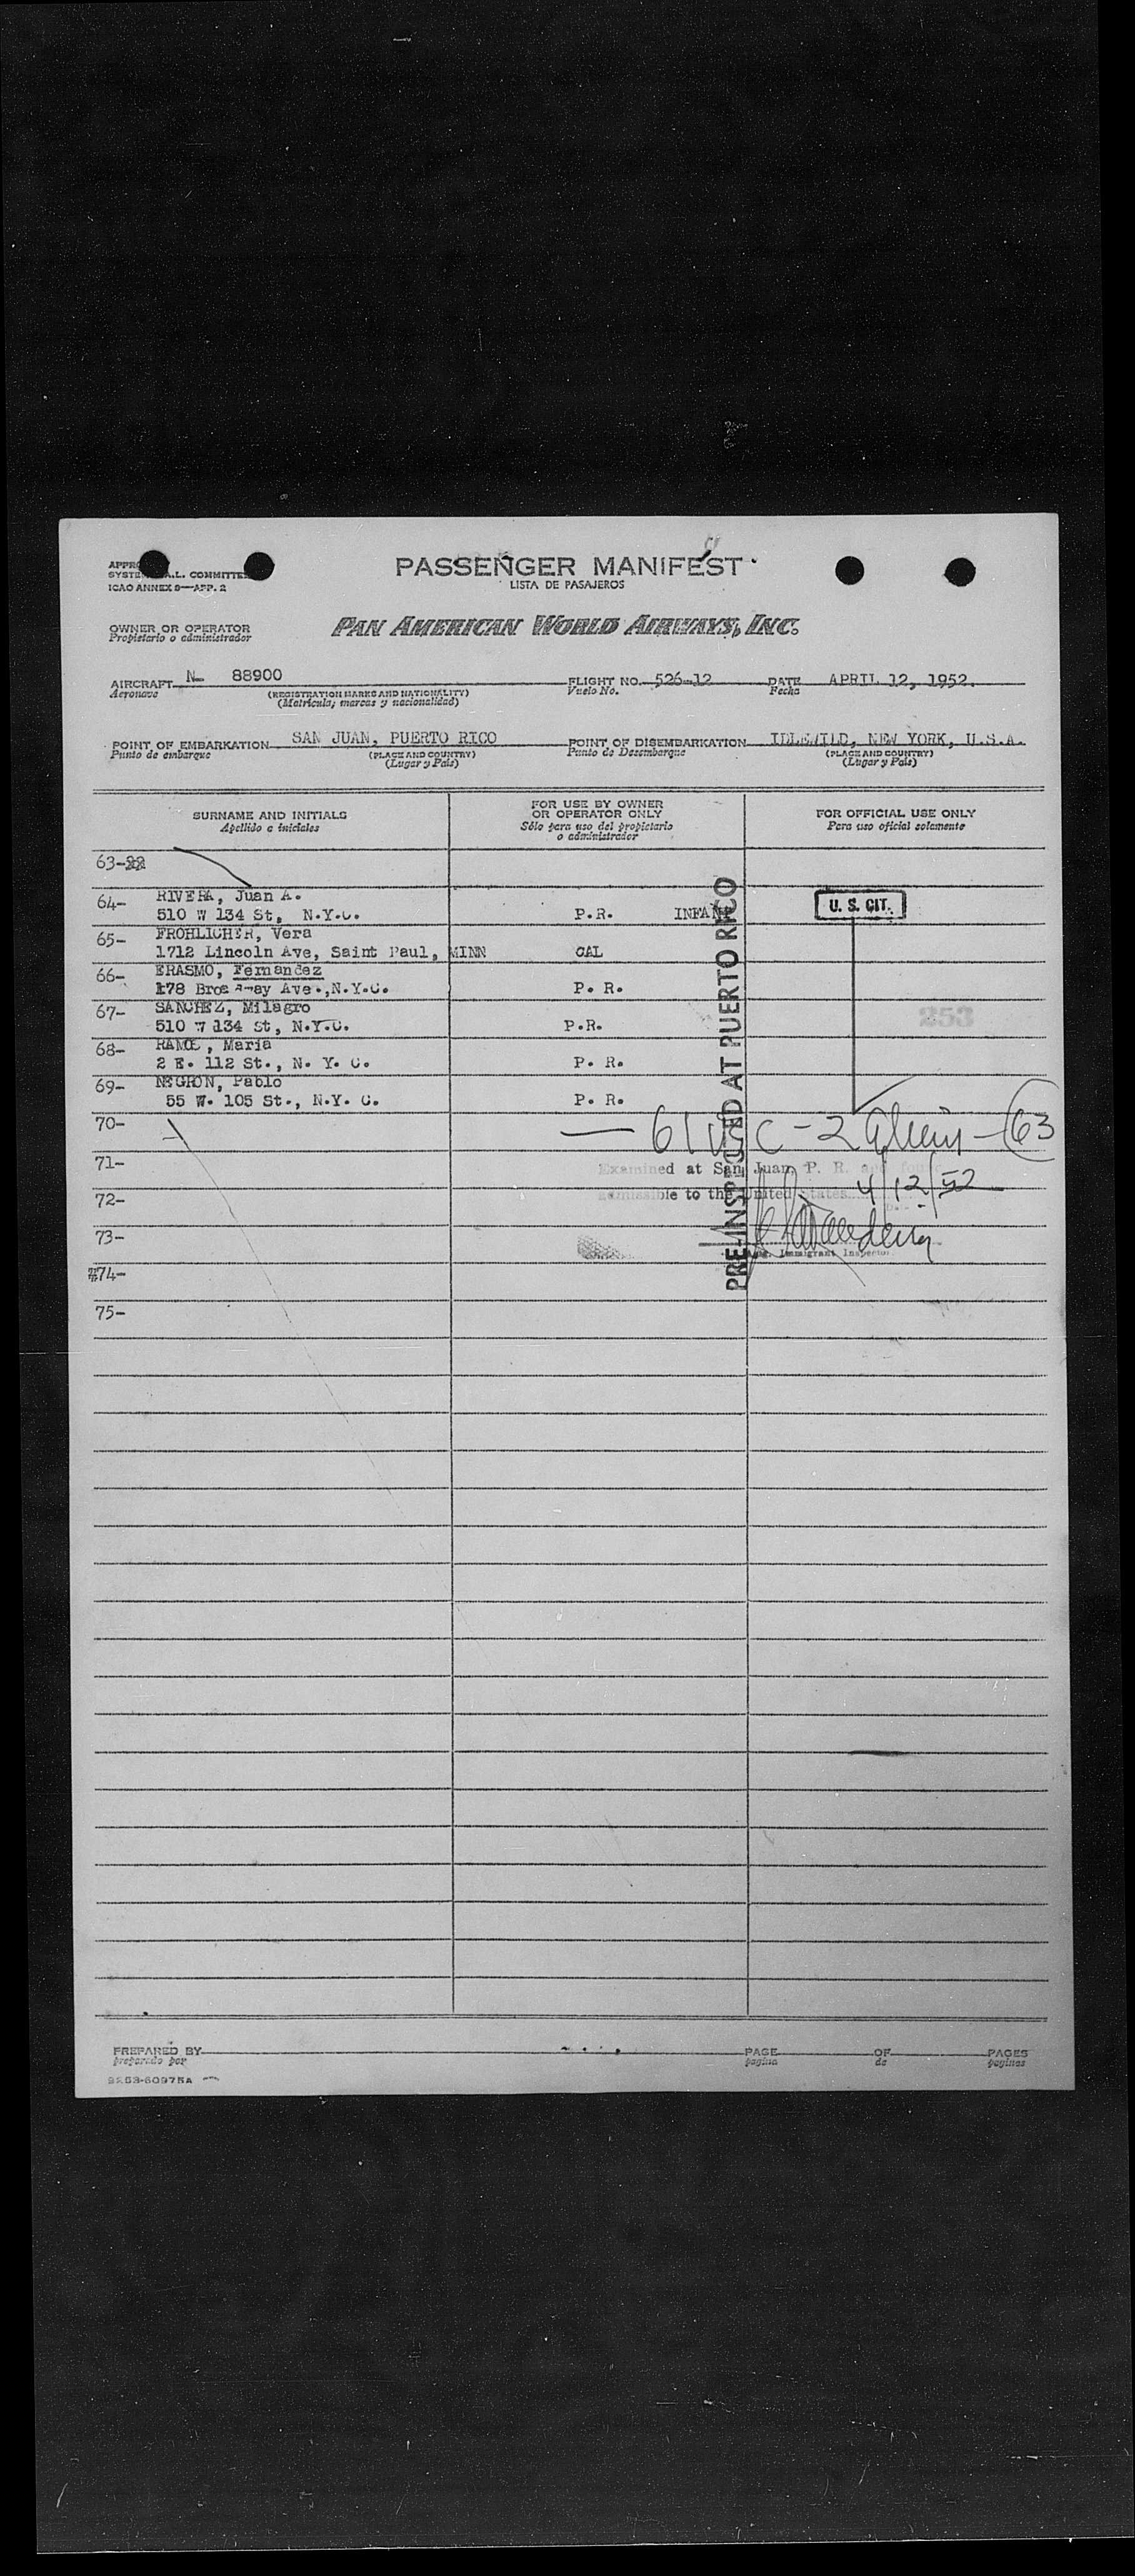 PASSENGER MANIFEST
LISTA DE PASAJEROS
ICAO ANNEX 9—APP. 2
OWNER OR OPERATOR
Propietario o administrador
PAN AMERICAN WORLD AIRWAYS, INC.
AIRCRAFT N- 88900 FLIGHT NO. 526-12 DATE APRIL 12, 1952.
Aeronave (REGISTRATION MARKS AND NATIONALITY) Vuelo No. Fecha
(Matricula; marcas y nacionalidad)
POINT OF EMBARKATION SAN JUAN, PUERTO RICO POINT OF DISEMBARKATION IDLEWILD, NEW YORK, U.S.A.
Punto de embarque (PLACE AND COUNTRY) Punto de Desembarque (PLACE AND COUNTRY)
(Lugar y País) (Lugar y País)
SURNAME AND INITIALS FOR USE BY OWNER OR OPERATOR ONLY FOR OFFICIAL USE ONLY
Apellido e iniciales Sólo para uso del propietario o administrador Para uso oficial solamente
63-
64- RIVERA, Juan A.
510 W 134 St, N.Y.C. P.R. INFANT U. S. CIT.
65- FROHLICHER, Vera
1712 Lincoln Ave, Saint Paul, MINN CAL
66- ERASMO, Fernandez
178 Ave.,N.Y.C. P. R.
67- SANCHEZ, Milagro
510 W 134 St, N.Y.C. P.R. 253
68- RAMOS, Maria
2 E. 112 St., N. Y. C. P. R.
69- NEGRON, Pablo
55 W. 105 St., N.Y. C. P. R.
70- — 61 USC - 2 Aliens - 63
71- Examined at San Juan, P. R. and found
72- admissible to the United States 4/12/52
73-
Immigrant Inspector
74-
75-
PRE-INSPECTED AT PUERTO RICO
PREPARED BY PAGE OF PAGES
preparado por pagina de paginas